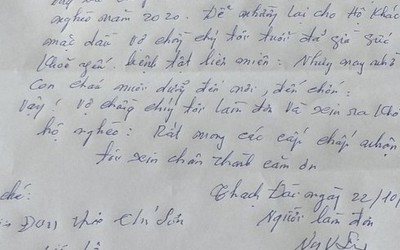 nghèo năm 2020. Để nhường lại cho Hộ khác
mặc dầu vợ chồng chị tôi tuổi đã già sức
khỏe yếu. bệnh tật liên miên: Nhưng may nhờ
Con cháu nuôi dưỡng đến nơi, đến chốn:
Vậy! Vợ chồng chúng tôi làm đơn và xin ra khỏi
hộ nghèo: Rất mong các cấp chấp nhận
tôi xin chân thành cảm ơn
Thạch Đài ngày 22/10/
Người làm đơn